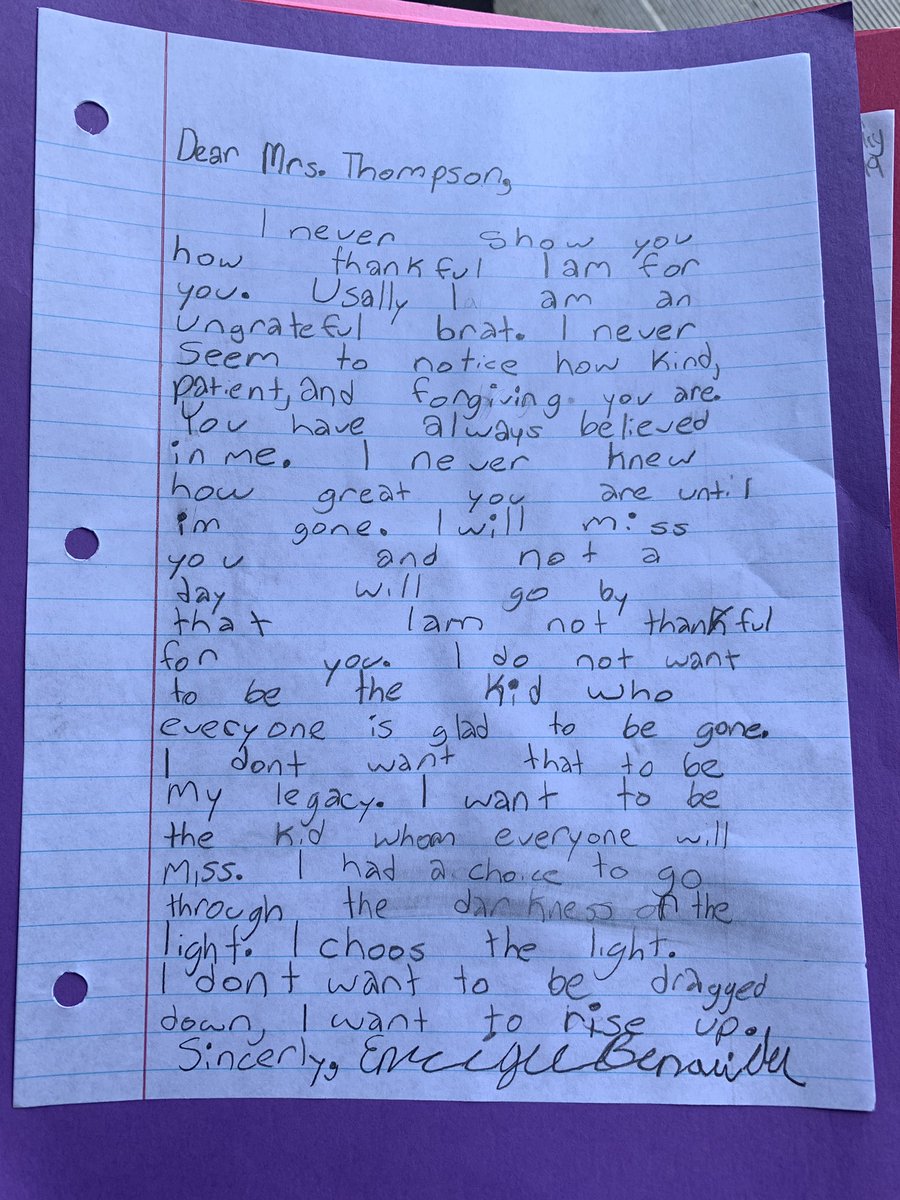 Dear Mrs. Thompson,
I never show you
how thankful I am for
you. Usally I am an
ungrateful brat. I never
seem to notice how kind,
patient, and forgiving you are.
You have always believed
in me. I never knew
how great you are until
im gone. I will miss
you and not a
day will go by
that I am not thankful
for you. I do not want
to be the kid who
everyone is glad to be gone.
I dont want that to be
my legacy. I want to be
the kid whom everyone will
miss. I had a choice to go
through the darkness or the
light. I choos the light.
I don't want to be dragged
down, I want to rise up.
Sincerly, Enrique